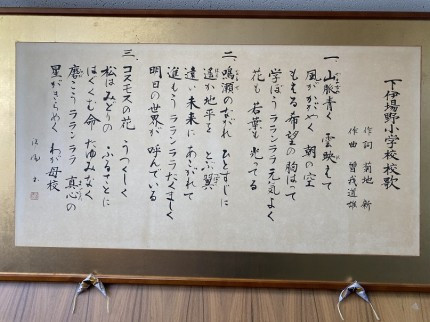 下伊場野小学校校歌
作詞 菊地 新
作曲 曽我道雄
一、山脈青く 雲映えて
風がかがやく 朝の空
もえる希望の 胸はって
学ぼう ラランララ 元気よく
花も 若葉も 光ってる
二、鳴瀬のながれ ひとすじに
遥か地平を とぶ翼
遠い未来に あこがれて
進もう ラランララ たくましく
明日の世界が 呼んでいる
三、コスモスの花 うつくしく
松はみどりの ふるさとに
はぐくむ命 たゆみなく
磨こう ラランララ 真心の
星がきらめく わが母校